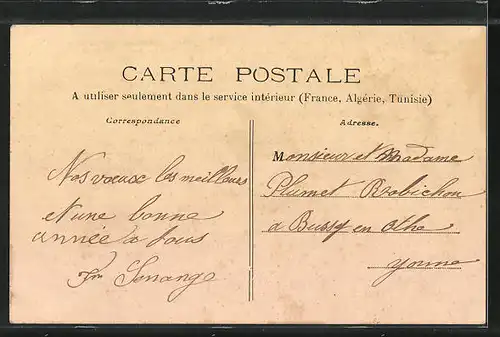 CARTE POSTALE
A utiliser seulement dans le service intérieur (France, Algérie, Tunisie)
Correspondance
Nos vœux les meilleurs
et une bonne
année a tous
Adresse.
Monsieur et Madame
Plumet Robichon
a Bussy en Othe
Yonne